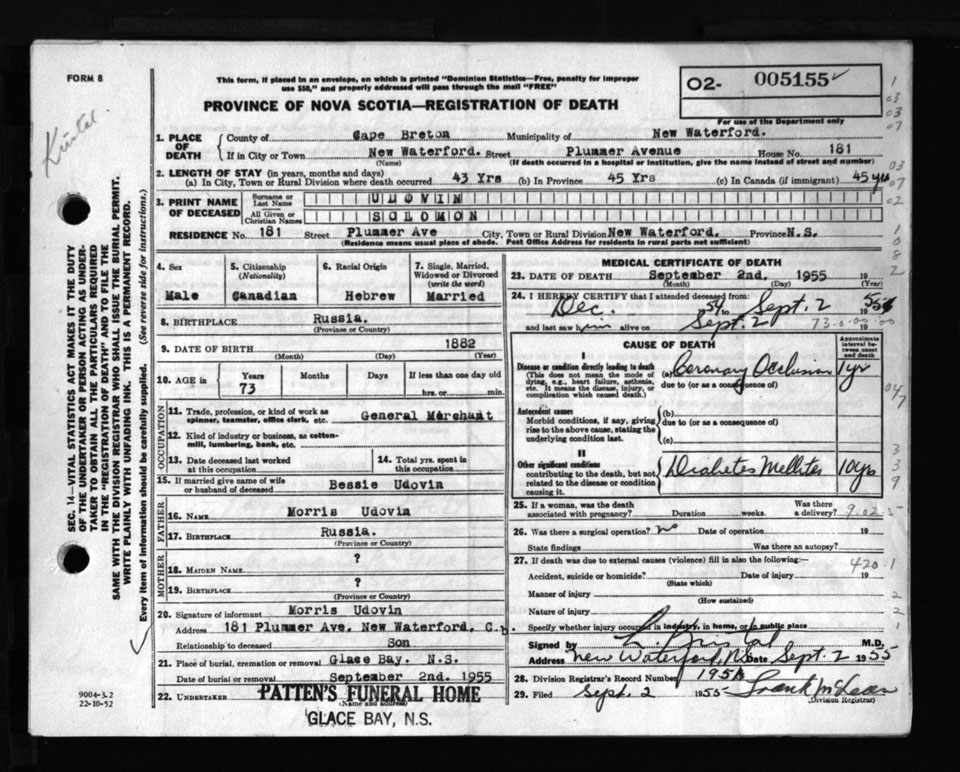 FORM 8
This form, if placed in an envelope, on which is printed "Dominion Statistics—Free, penalty for improper
use $50," and properly addressed will pass through the mail "FREE"
PROVINCE OF NOVA SCOTIA—REGISTRATION OF DEATH
02- 005155
For use of the Department only
1. PLACE OF DEATH
County of Cape Breton Municipality of New Waterford.
If in City or Town New Waterford. Street Plummer Avenue House No. 181
(Name) (If death occurred in a hospital or institution, give the name instead of street and number)
2. LENGTH OF STAY (in years, months and days)
(a) In City, Town or Rural Division where death occurred 43 Yrs (b) In Province 45 Yrs (c) In Canada (if immigrant) 45 yrs
3. PRINT NAME OF DECEASED
Surname or Last Name UDOVIN
All Given or Christian Names SOLOMON
RESIDENCE No. 181 Street Plummer Ave City, Town or Rural Division New Waterford. Province N.S.
(Residence means usual place of abode. Post Office Address for residents in rural parts not sufficient)
4. Sex
Male
5. Citizenship
(Nationality)
Canadian
6. Racial Origin
Hebrew
7. Single, Married,
Widowed or Divorced
(write the word)
Married
8. BIRTHPLACE Russia.
(Province or Country)
9. DATE OF BIRTH 1882
(Month) (Day) (Year)
10. AGE in
Years Months Days If less than one day old
73 hrs. or min.
OCCUPATION
11. Trade, profession, or kind of work as
spinner, teamster, office clerk, etc. General Merchant
12. Kind of industry or business, as cotton-
mill, lumbering, bank, etc.
13. Date deceased last worked
at this occupation
14. Total yrs. spent in
this occupation
15. If married give name of wife
or husband of deceased Bessie Udovin
FATHER
16. NAME Morris Udovin
17. BIRTHPLACE Russia.
(Province or Country)
MOTHER
18. MAIDEN NAME ?
19. BIRTHPLACE ?
(Province or Country)
20. Signature of informant Morris Udovin
Address 181 Plummer Ave. New Waterford, C.b.
Relationship to deceased Son
21. Place of burial, cremation or removal Glace Bay. N.S.
Date of burial or removal September 2nd. 1955
22. UNDERTAKER PATTEN'S FUNERAL HOME
(Name and address)
GLACE BAY, N.S.
MEDICAL CERTIFICATE OF DEATH
23. DATE OF DEATH September 2nd. 1955 19
(Month) (Day) (Year)
24. I HEREBY CERTIFY that I attended deceased from:
Dec. 1954 to Sept. 2 1955
and last saw him alive on Sept. 2
CAUSE OF DEATH
Approximate
interval be-
tween onset
and death
I
Disease or condition directly leading to death
(This does not mean the mode of
dying, e.g., heart failure, asthenia,
etc. It means the disease, injury, or
complication which caused death.)
(a) Coronary Occlusion 1 yr
due to (or as a consequence of)
Antecedent causes
Morbid conditions, if any, giving
rise to the above cause, stating the
underlying condition last.
(b)
due to (or as a consequence of)
(c)
II
Other significant conditions
contributing to the death, but not
related to the disease or condition
causing it.
Diabetes Mellites 10 yrs
25. If a woman, was the death
associated with pregnancy? Duration weeks. Was there
a delivery?
26. Was there a surgical operation? No Date of operation 19
State findings Was there an autopsy?
27. If death was due to external causes (violence) fill in also the following:—
420.1
Accident, suicide or homicide? Date of injury 19
(State which)
Manner of injury
(How sustained)
Nature of injury
Specify whether injury occurred in industry, in home, or in public place
Signed by M.D.
Address New Waterford, N.S. Date Sept. 2 1955
28. Division Registrar's Record Number 195A
29. Filed Sept. 2 1955 Frank McLean
(Division Registrar)
SEC. 14—VITAL STATISTICS ACT MAKES IT THE DUTY
OF THE UNDERTAKER OR PERSON ACTING AS UNDER-
TAKER TO OBTAIN ALL THE PARTICULARS REQUIRED
IN THE "REGISTRATION OF DEATH" AND TO FILE THE
SAME WITH THE DIVISION REGISTRAR WHO SHALL ISSUE THE BURIAL PERMIT.
WRITE PLAINLY WITH UNFADING INK. THIS IS A PERMANENT RECORD.
Every item of information should be carefully supplied. (See reverse side for instructions.)
9004-3.2
22-10-52